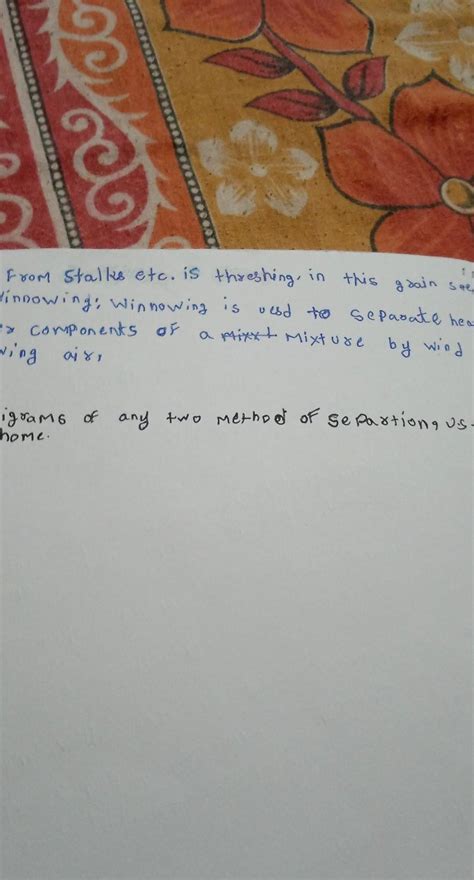 From Stalks etc. is threshing. in this grain see
innowing: Winnowing is used to separate hea
components of a mixxt mixture by wind
wing air,
igrams of any two method of separtiong us
home.